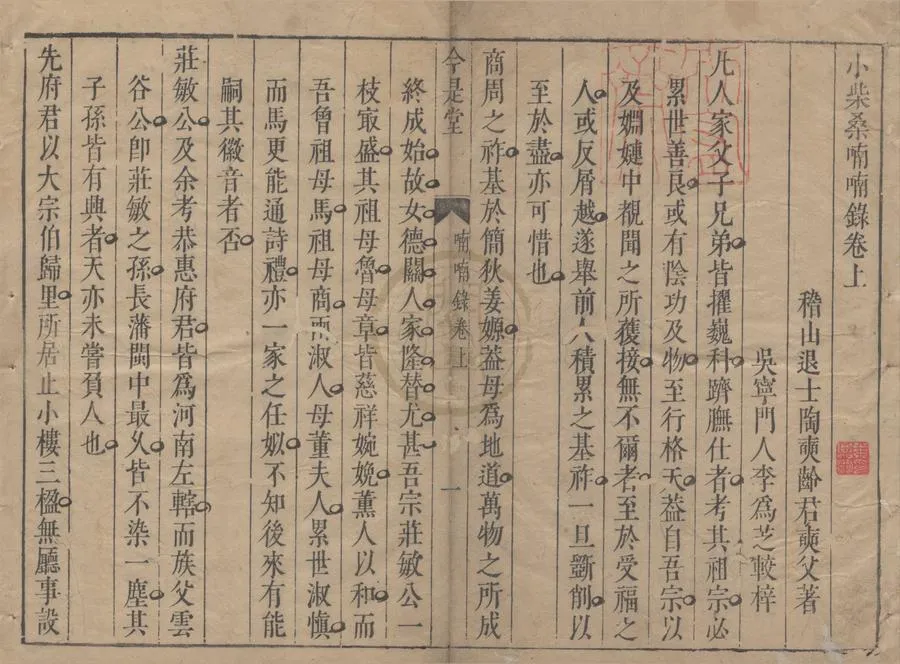 小柴桑喃喃錄卷上
稽山退士陶奭齡君奭父著
吳寧門人李爲芝較梓
凡人家父子兄弟皆擢巍科躋膴仕者考其祖宗必
累世善良或有陰功及物至行格天葢自吾宗以
及婣嗹中覩聞之所獲接無不爾者至於受福之
人或反屑越遂舉前人積累之基祚一旦斵削以
至於盡亦可惜也
商周之祚基於簡狄姜嫄葢母爲地道萬物之所成
今是堂
喃喃錄卷上
一
終成始故女德關人家隆替尤甚吾宗莊敏公一
枝㝡盛其祖母魯母章皆慈祥婉娩薰人以和而
吾曾祖母馬祖母商兩淑人母董夫人累世淑愼
而馬更能通詩禮亦一家之任姒不知後來有能
嗣其徽音者否
莊敏公及余考恭惠府君皆爲河南左轄而族父雲
谷公卽莊敏之孫長藩閩中最久皆不染一塵其
子孫皆有興者天亦未嘗負人也
先府君以大宗伯歸里所居止小樓三楹無廳事設